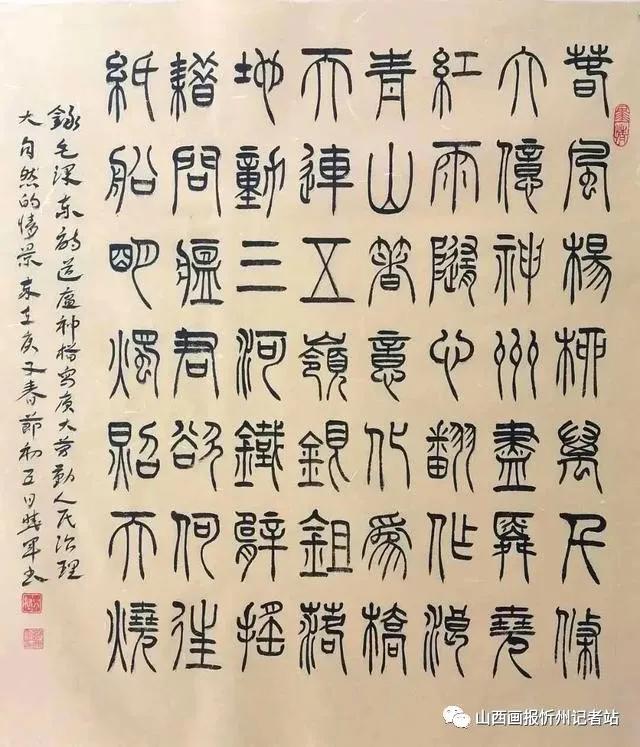 春風楊柳萬千條
六億神州盡舜堯
紅雨隨心翻作浪
青山著意化為橋
天連五嶺銀鉏落
地動三河鐵臂搖
耤問瘟君欲何往
紙船明燭照天燒
錄毛泽东詩送瘟神描写广大劳動人民治理
大自然的情景 庚子春節初五日 军书
山西画报忻州记者站